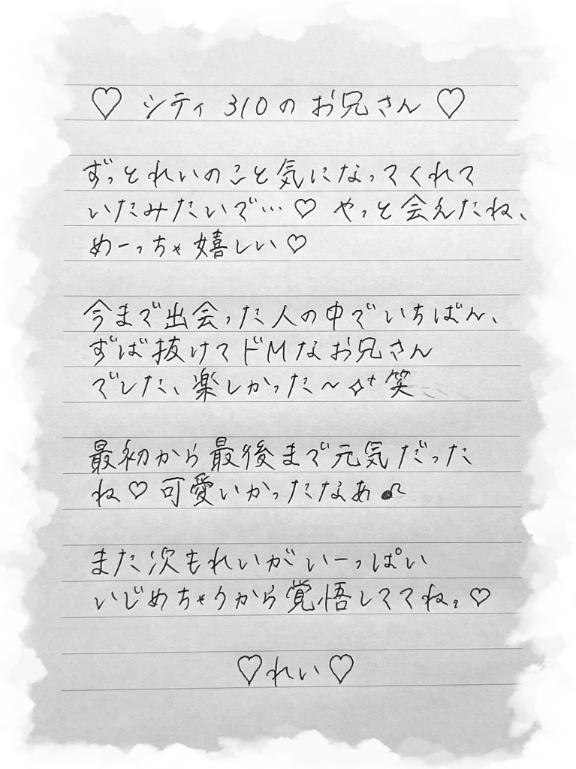 ♡ シティ 310 の お兄さん ♡
ずっとれいのこと気になってくれて
いたみたいで…♡ やっと会えたね、
めーっちゃ嬉しい♡
今まで出会った人の中でいちばん、
ずば抜けてドMなお兄さん
でした、楽しかった〜✧⁺笑
最初から最後まで元気だった
ね♡可愛いかったなあ
また次もれいがいーっぱい
いじめちゃうから覚悟しててね。♡
♡れい♡